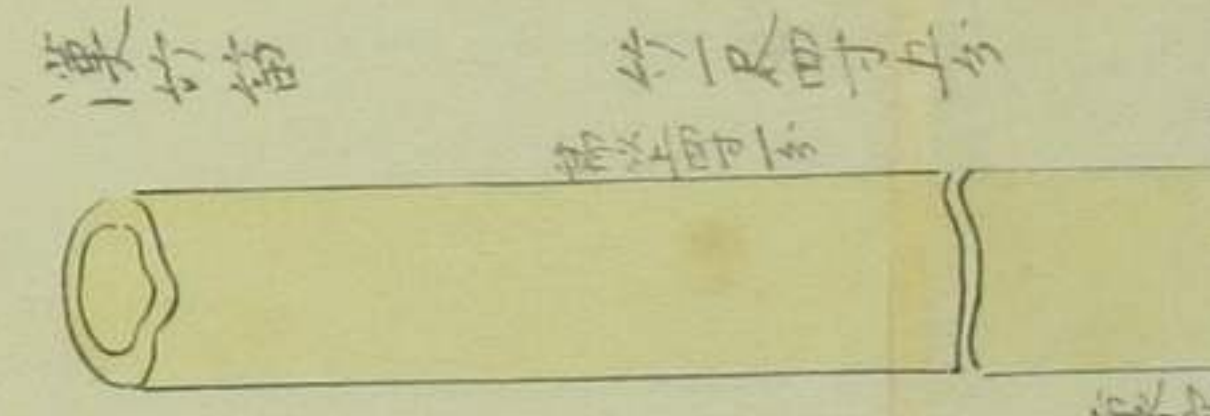 漢竹
竹一尺四寸五分
節以上四寸一分